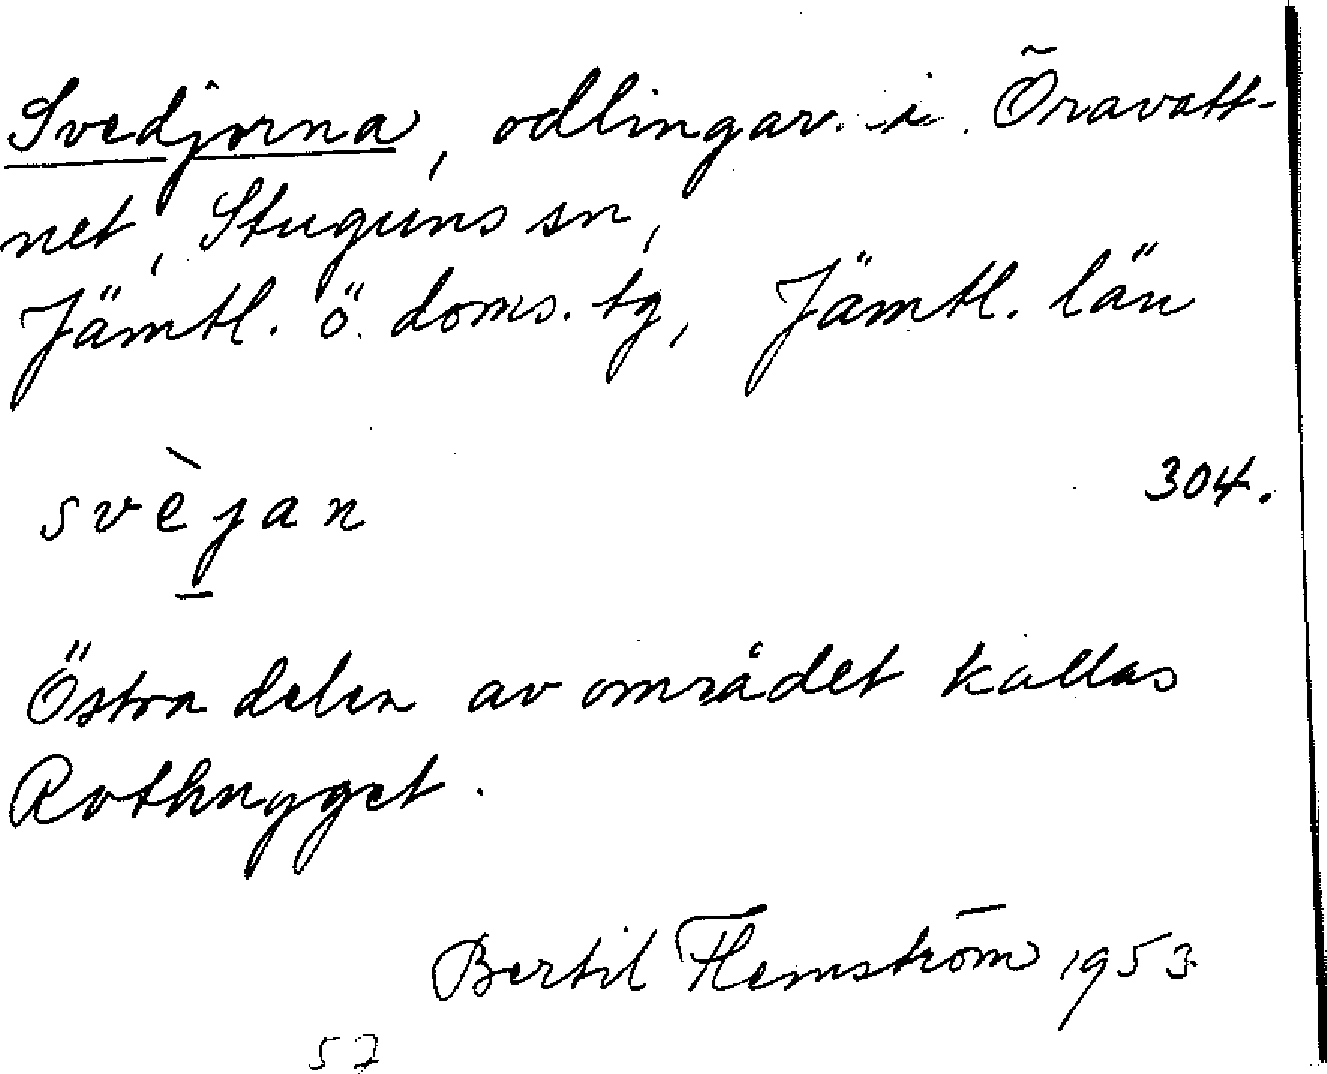 Svedjorna, odlingar i Öravatt-
net, Stuguns sn,
Jämtl. ö. doms. tg, Jämtl. län
304.
svèjan
Östra delen av området kallas
Rothugget.
Bertil Flemström 1953
57